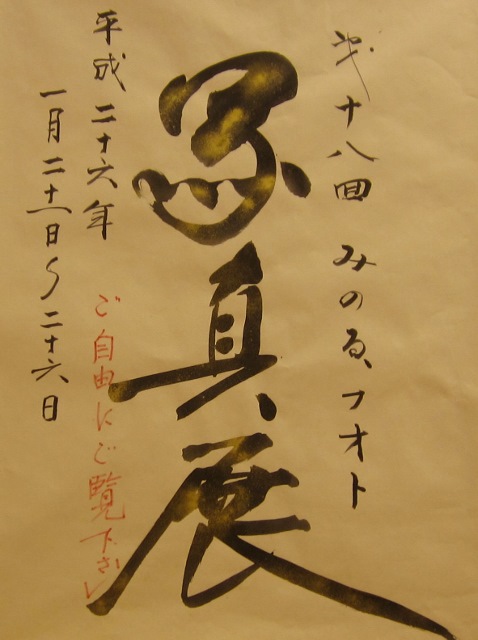 第十八回 みのる、フオト
写真展
平成二十六年
一月二十一日〜二十六日
ご自由にご覧下さい